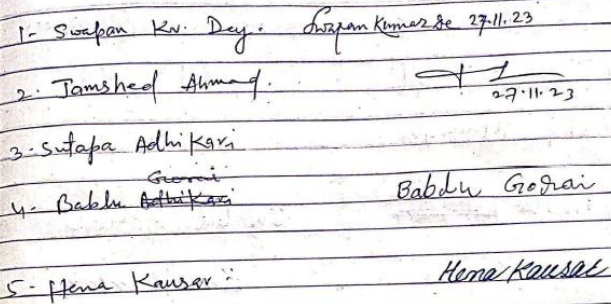 1- Swapan Kr. Dey. Swapan Kumar De 27.11.23
2. Jamshed Ahmad.
27.11.23
3. Sutapa Adhikari
Gorai
4- Bablu Adhikari Bablu Gorai
5- Hena Kausar Hena Kausar